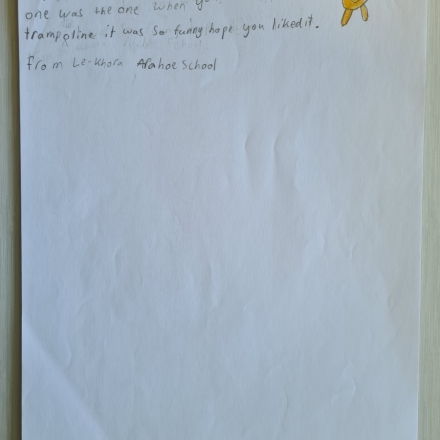 one was the one when yo
trampoline it was so funny hope you liked it.
from Le-Khora Arahoe School